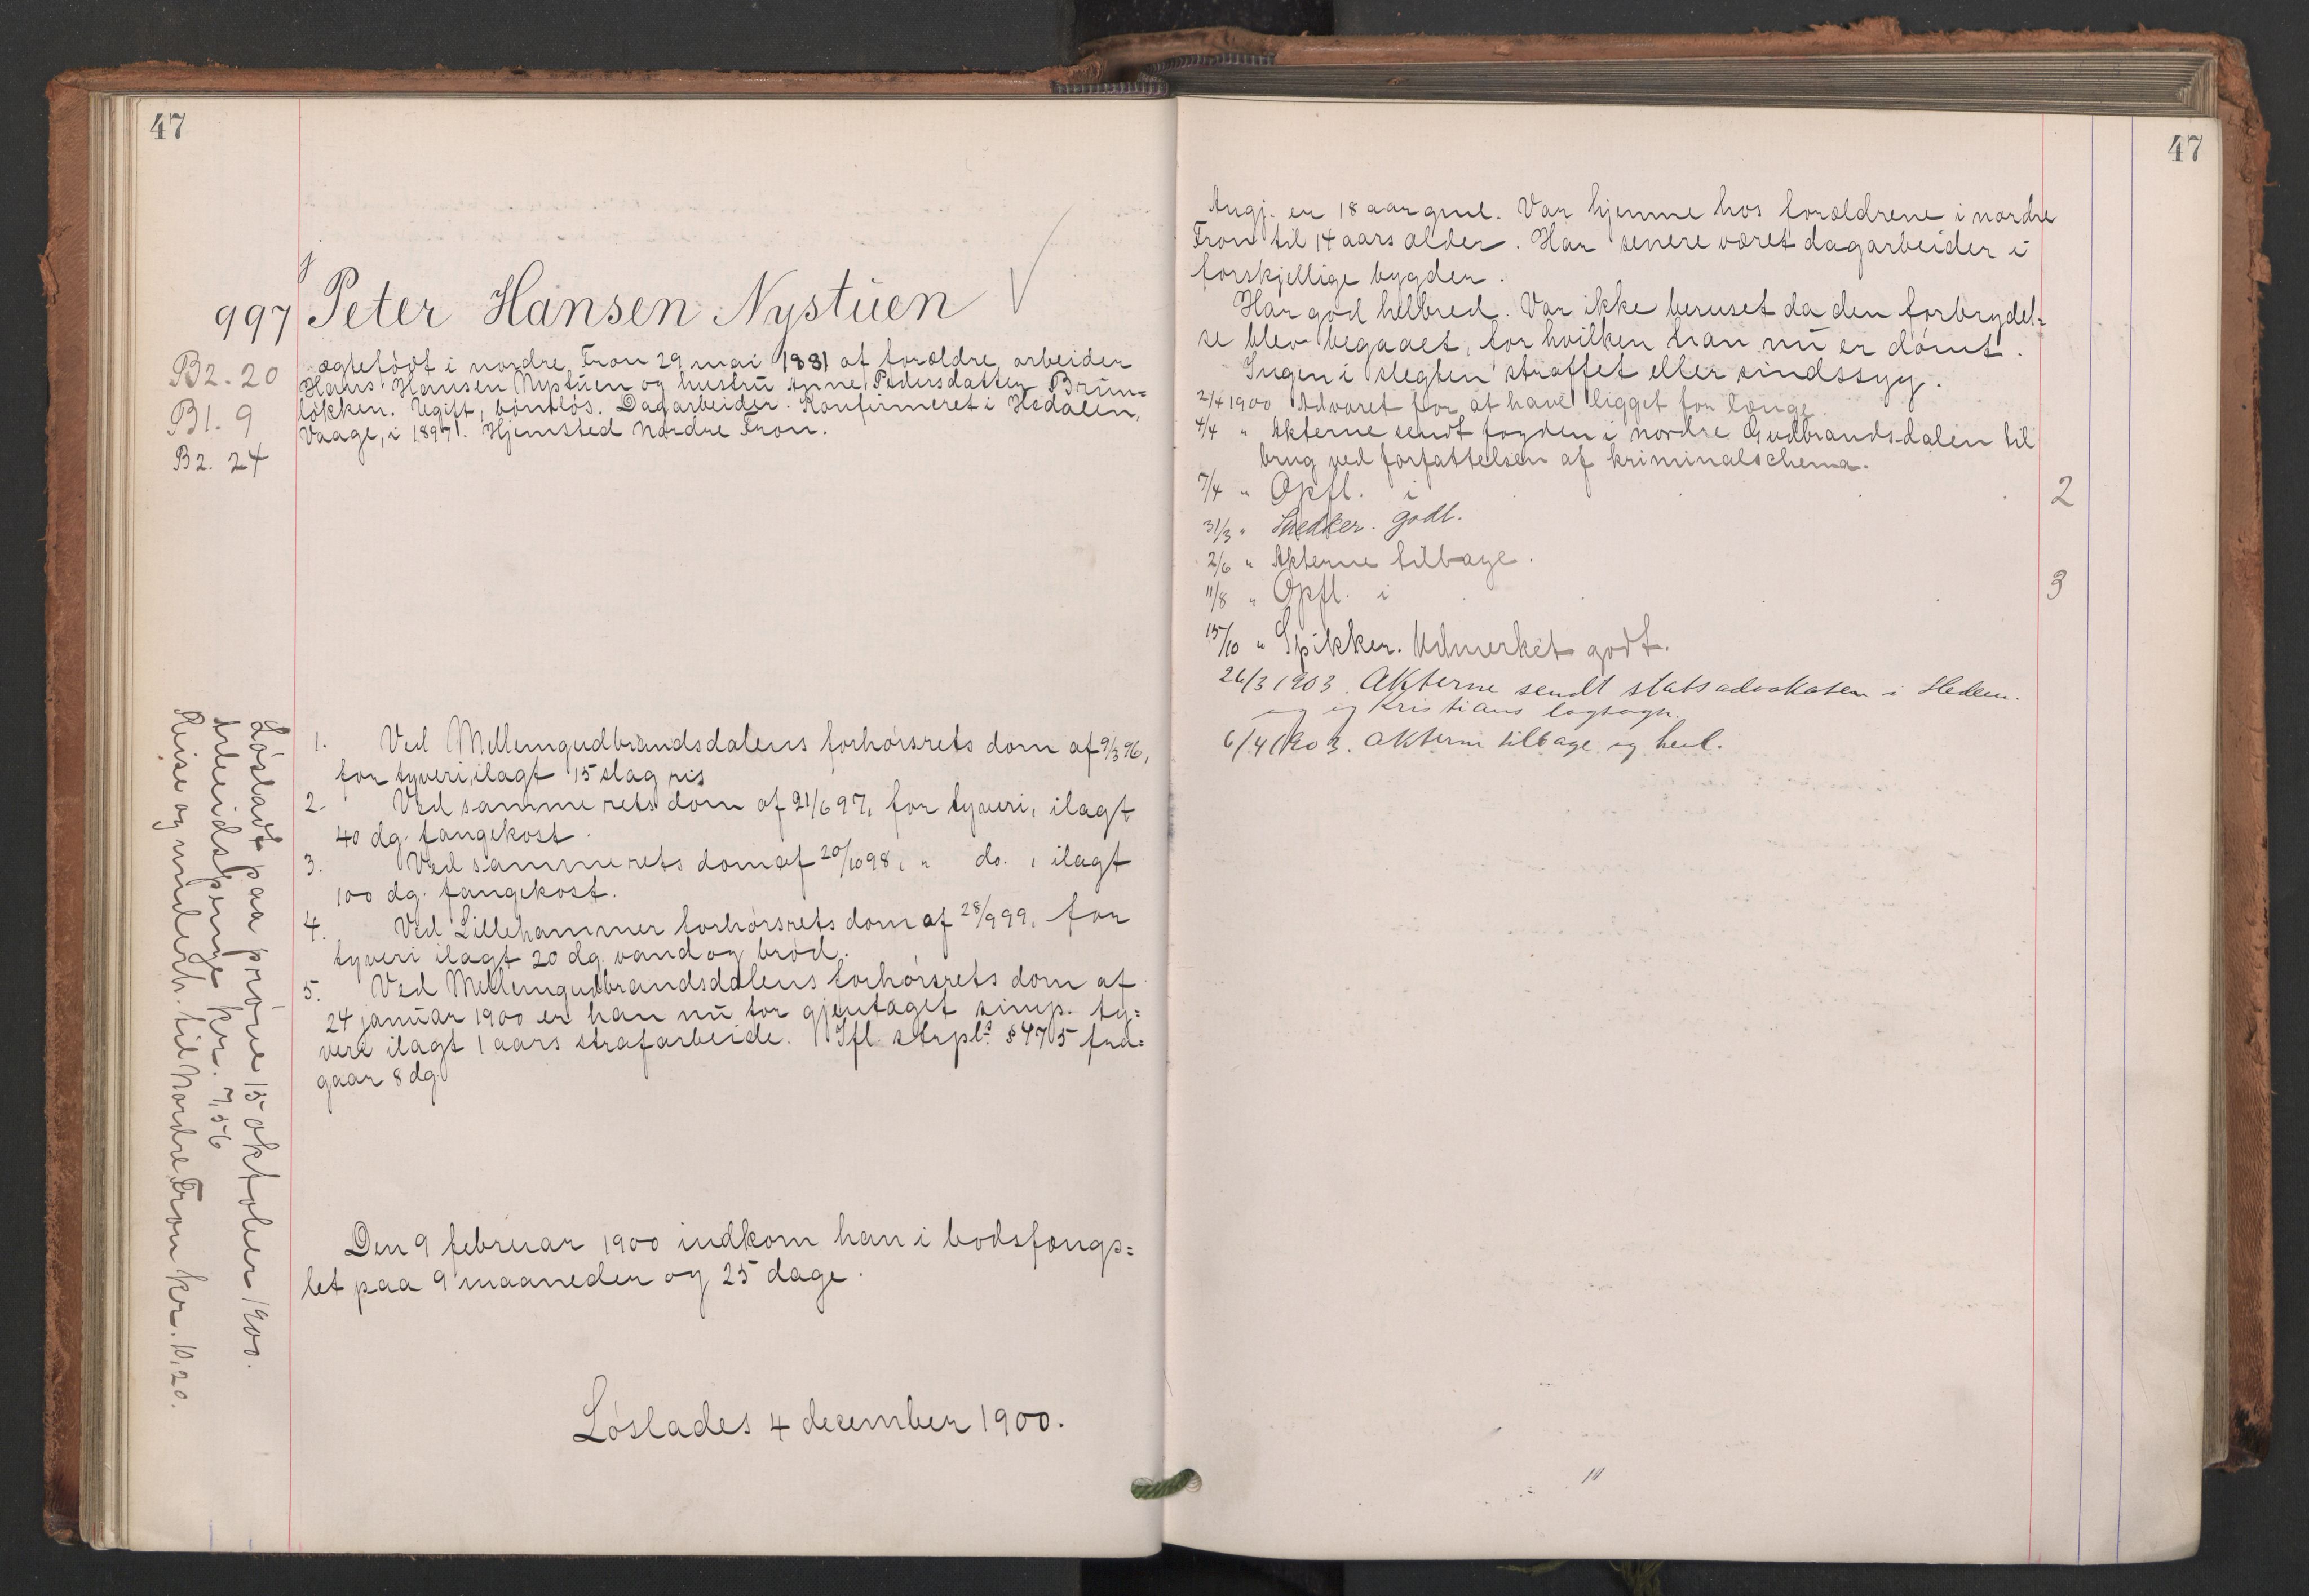 47
997 Peter Hansen Nystuen
B2. 20
B1. 9
B2. 24
ægtefødt i nordre Fron 29 mai 1881 af forældre arbeider
Hans Hansen Nystuen og hustru Anne Pedersdatter Brun=
løkken. Ugift, børnløs. Dagarbeider. Konfirmeret i Hedalen,
Vaage, i 1897. Hjemsted Nordre Fron.
1. Ved Mellemgudbrandsdalens forhørsrets dom af 9/3 96,
for tyveri, ilagt 15 slag ris
2. Ved samme rets dom af 21/6 97, for tyveri, ilagt
40 dg. fangekost.
3. Ved samme rets dom af 20/10 98, " do. , ilagt
100 dg. fangekost.
4. Ved Lillehammer forhørsrets dom af 28/9 99, for
tyveri ilagt 20 dg. vand og brød.
5. Ved Mellemgudbrandsdalens forhørsrets dom af
24 januar 1900 er han nu for gjentaget simp. ty=
veri ilagt 1 aars strafarbeide. Ifl. strpl. § 475 fra=
gaar 8 dg.
Den 9 februar 1900 indkom han i bodsfængs=
let paa 9 maaneder og 25 dage.
Løslades 4 december 1900.
Løsladt paa prøve 15 oktober 1900.
Arbeidspenge kr. 7,56
Reise og underh. til Nordre Fron kr. 10,20.
47
Angj. er 18 aar gml. Var hjemme hos forældrene i nordre
Fron til 14 aars alder. Har senere været dagarbeider i
forskjellige bygder.
Har god helbred. Var ikke beruset da den forbrydel=
se blev begaaet, for hvilken han nu er dømt.
Ingen i slegten straffet eller sindssyg.
2/4 1900 Advaret for at have ligget for længe
4/4 " Akterne sendt fogden i nordre Gudbrandsdalen til
brug ved forfattelsen af kriminalschema.
7/4 " Opfl. i . . . 2
31/3 " Snedker. godt.
2/6 " Akterne tilbage.
11/8 " Opfl. i . . . 3
15/10 " Spikker. Udmerket godt.
26/3 1903. Akterne sendt statsadvokaten i Hedem.
og Kristians lagsogn.
6/4 1903. Akterne tilbage og henl.